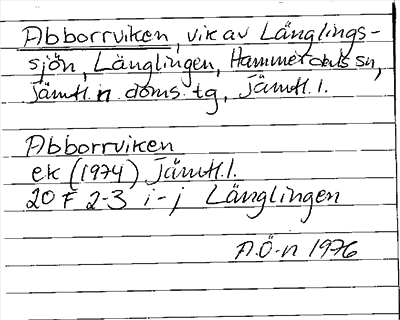 Abborrviken, vik av Länglings-
sjön, Länglingen, Hammerdals sn,
Jämtl. n. doms. tg, Jämtl. l.
Abborrviken
ek (1974) Jämtl. l.
20 F 2-3 i-j Länglingen
A.Ö-n 1976